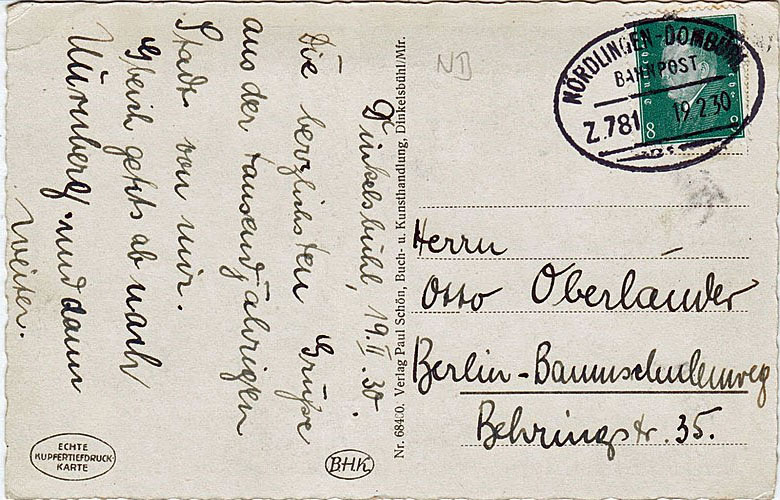 Dinkelsbühl, 19.II.30.
Die herzlichsten Grüße
aus der tausendjährigen
Stadt von mir.
Gleich gehts ab nach
Nürnberg und dann
weiter.
Nr. 68400. Verlag Paul Schön, Buch- u. Kunsthandlung, Dinkelsbühl/Mfr.
ND
NÖRDLINGEN-DOMBÜHL
BAHNPOST
Z.781
19 2 30
8
Herrn
Otto Oberländer
Berlin-Baumschulenweg
Behringstr. 35.
ECHTE
KUPFERTIEFDRUCK
KARTE
B.H.K.